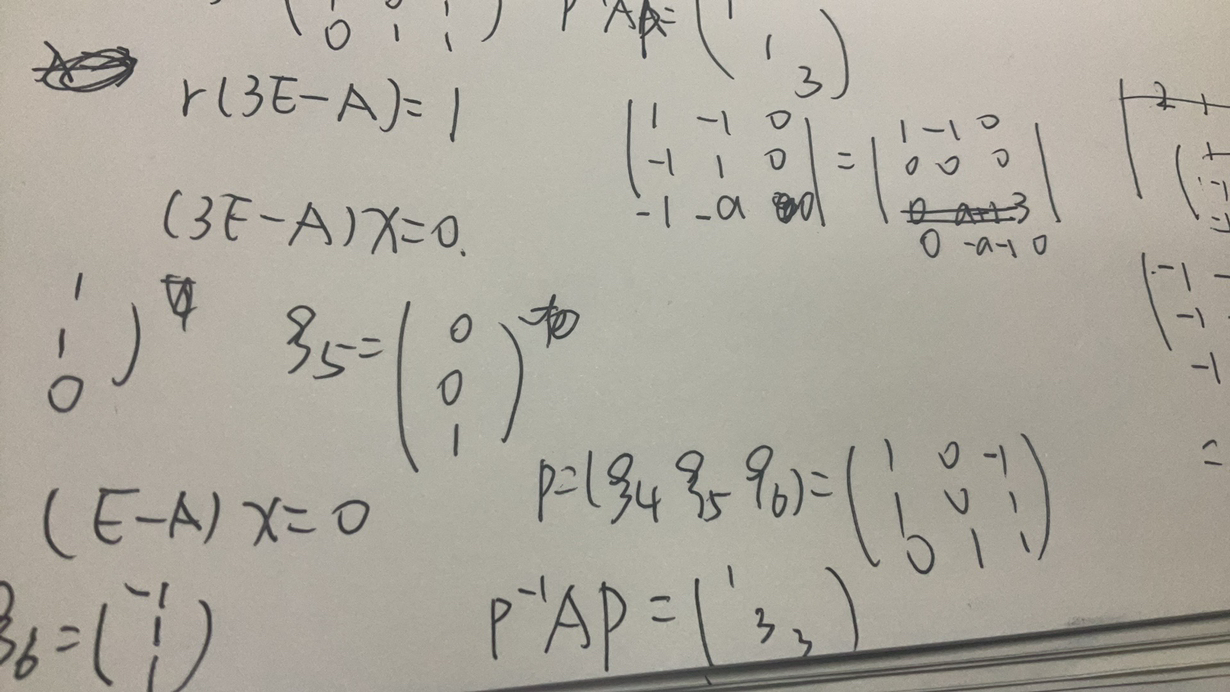 0 1 1
P⁻¹AP= ( 1
1
3 )
r(3E-A)=1
| 1 -1 0
-1 1 0
-1 -a 0 | = | 1 -1 0
0 0 0
0 -a-1 0 |
(3E-A)x=0.
1
1
0 )
ξ5= ( 0
0
1 )
P=(ξ4 ξ5 ξ6)= ( 1 0 -1
1 0 1
0 1 1 )
(E-A)x=0
ξ6= ( -1
1
1 )
P⁻¹AP= ( 1
3 3 )
( -1
-1
-1
=